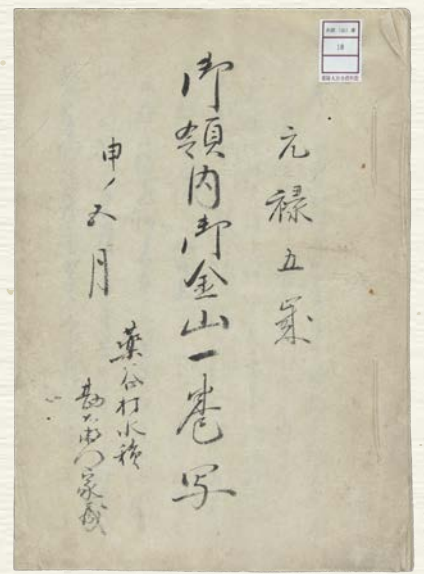 元禄五歳
御領内御金山一巻写
申ノ五月
薬谷村水積
勘右衛門家蔵
18